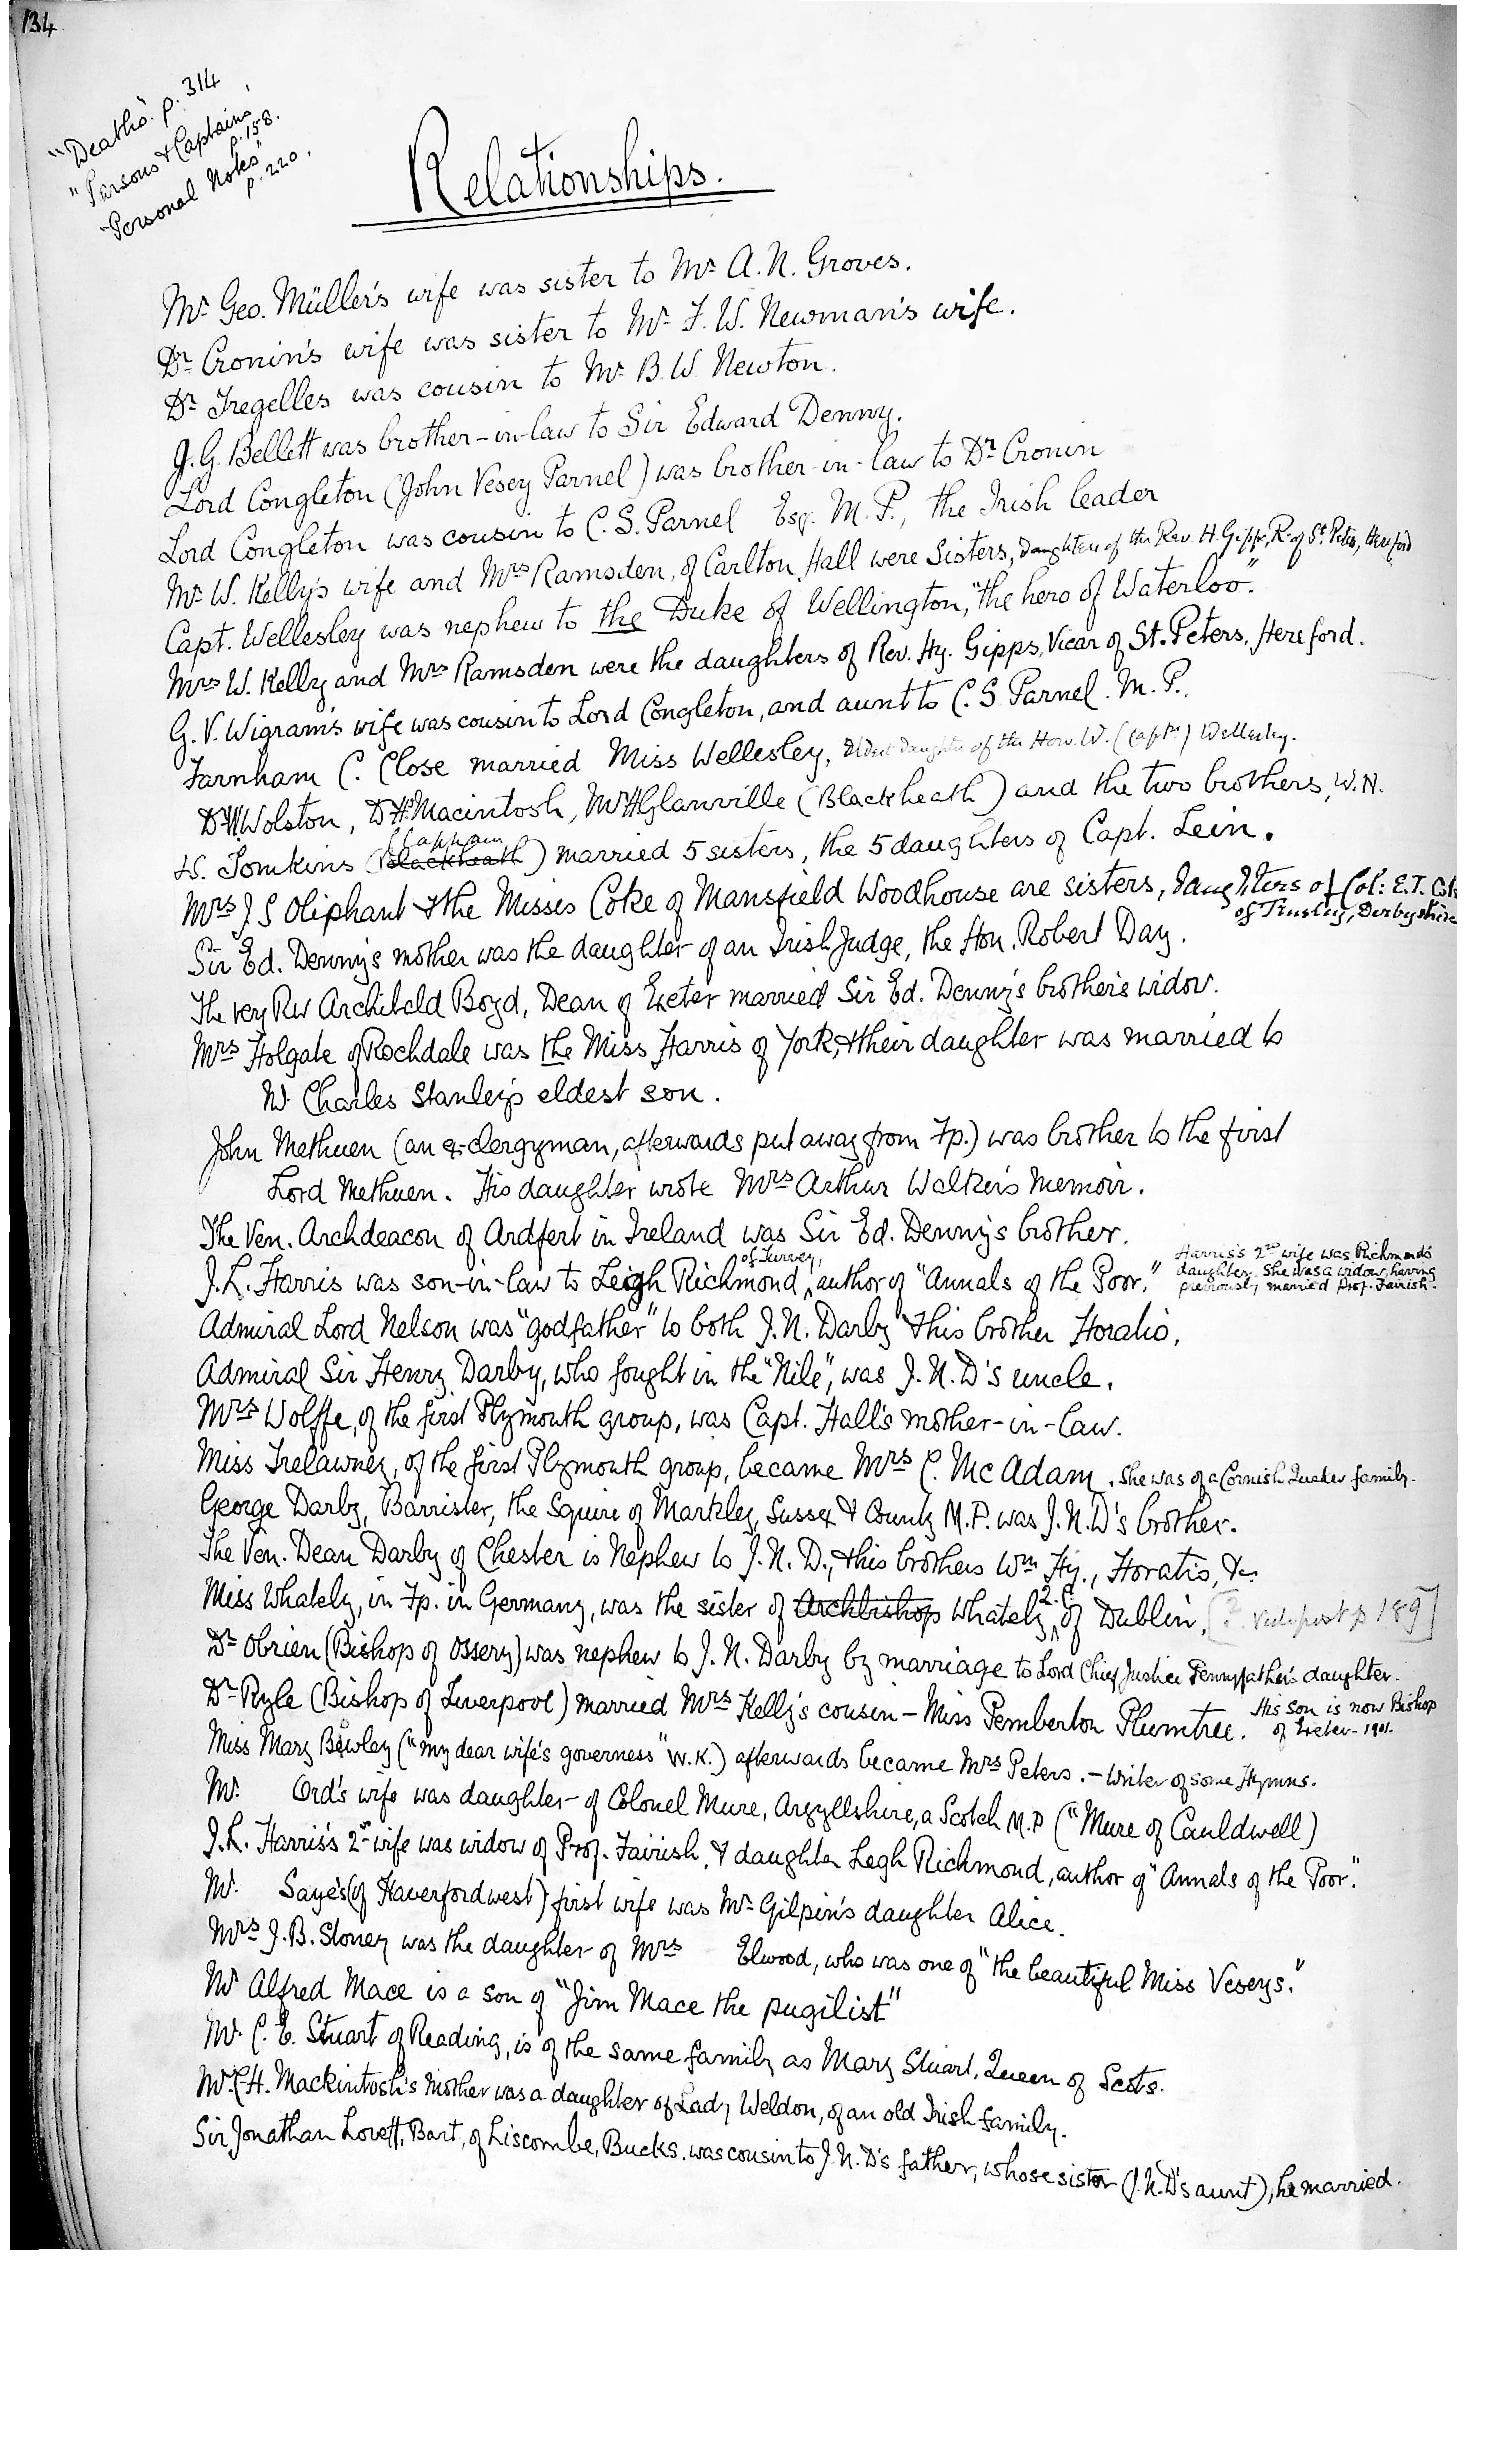 134
"Deaths" p. 314
"Parsons & Captains," p. 158.
"Personal Notes" p. 220.
Relationships.
Mr Geo. Müller's wife was sister to Mr A. N. Groves.
Dr Cronin's wife was sister to Mr F. W. Newman's wife.
Dr Tregelles was cousin to Mr B. W. Newton.
J. G. Bellett was brother-in-law to Sir Edward Denny.
Lord Congleton (John Vesey Parnel) was brother-in-law to Dr Cronin
Lord Congleton was cousin to C. S. Parnel Esq. M. P., the Irish leader
Mr W. Kelly's wife and Mrs Ramsden, of Carlton Hall were Sisters, daughters of the Rev. H. Gipps, R. of St. Peters, Hereford
Capt. Wellesley was nephew to the Duke of Wellington, "the hero of Waterloo".
Mrs W. Kelly and Mrs Ramsden were the daughters of Rev. Hy. Gipps, Vicar of St. Peters, Hereford.
G. V. Wigram's wife was cousin to Lord Congleton, and aunt to C. S. Parnel. M. P.
Farnham C. Close married Miss Wellesley, Eldest daughter of the Hon. W. (Captn) Wellesley.
Dr W Wolston, Dr H. Macintosh, Mr H Glanville (Blackheath) and the two brothers, W. N.
H. Tomkins (Blackheath) married 5 sisters, the 5 daughters of Capt. Lein.
Clapham
Mrs J S Oliphant & the Misses Coke of Mansfield Woodhouse are sisters, daughters of Col: E. T. Coke
of Trusley, Derbyshire
Sir Ed. Denny's mother was the daughter of an Irish Judge, the Hon. Robert Day.
The very Rev Archibald Boyd, Dean of Exeter married Sir Ed. Denny's brother's widow.
Mrs Holgate of Rochdale was the Miss Harris of York, & their daughter was married to
Mr Charles Stanley's eldest son.
John Methuen (an ex-clergyman, afterwards put away from Fp.) was brother to the first
Lord Methuen. His daughter wrote Mrs Arthur Walker's Memoir.
The Ven. Archdeacon of Ardfert in Ireland was Sir Ed. Denny's brother.
J. L. Harris was son-in-law to Leigh Richmond of Turvey, author of "Annals of the Poor."
Harris's 2nd wife was Richmonds
daughter. She was a widow, having
previously married Prof. Fairish.
Admiral Lord Nelson was "godfather" to both J. N. Darby & his brother Horatio.
Admiral Sir Henry Darby, who fought in the "Nile", was J. N. D's uncle.
Mrs Wolffe, of the first Plymouth group, was Capt. Hall's mother-in-law.
Miss Trelawney, of the first Plymouth group, became Mrs C. Mc Adam. She was of a Cornish Quaker family.
George Darby, Barrister, the Squire of Markley, Sussex & County M. P. was J. N. D's brother.
The Ven. Dean Darby of Chester is Nephew to J. N. D., & his brothers Wm Hy., Horatio, &c
Miss Whately, in Fp. in Germany, was the sister of Archbishop Whately, of Dublin, [? Vide post p 189]
Dr Obrien (Bishop of Ossery) was nephew to J. N. Darby by marriage to Lord Chief Justice Pennyfather's daughter.
Dr Ryle (Bishop of Liverpool) married Mrs Kelly's cousin – Miss Pemberton Plumtree. His son is now Bishop
of Exeter – 1901.
Miss Mary Bowley ("my dear wife's governess" W. K.) afterwards became Mrs Peters. – Writer of some Hymns.
Mr. Ord's wife was daughter of Colonel Mure, Argyllshire, a Scotch M. P ("Mure of Cauldwell)
J. L. Harris's 2nd wife was widow of Prof. Fairish, & daughter Legh Richmond, author of "Annals of the Poor."
Mr. Saye's (of Haverfordwest) first wife was Mr Gilpin's daughter Alice.
Mrs J. B. Stoney was the daughter of Mrs Elwood, who was one of "the beautiful Miss Veseys."
Mr Alfred Mace is a son of "Jim Mace the pugilist"
Mr. C. E. Stuart of Reading, is of the same family as Mary Stuart, Queen of Scots.
Mr C H. Mackintosh's Mother was a daughter of Lady Weldon, of an old Irish family.
Sir Jonathan Lovett, Bart, of Liscombe, Bucks. was cousin to J. N. D's father, whose sister (J. N. D's aunt), he married.